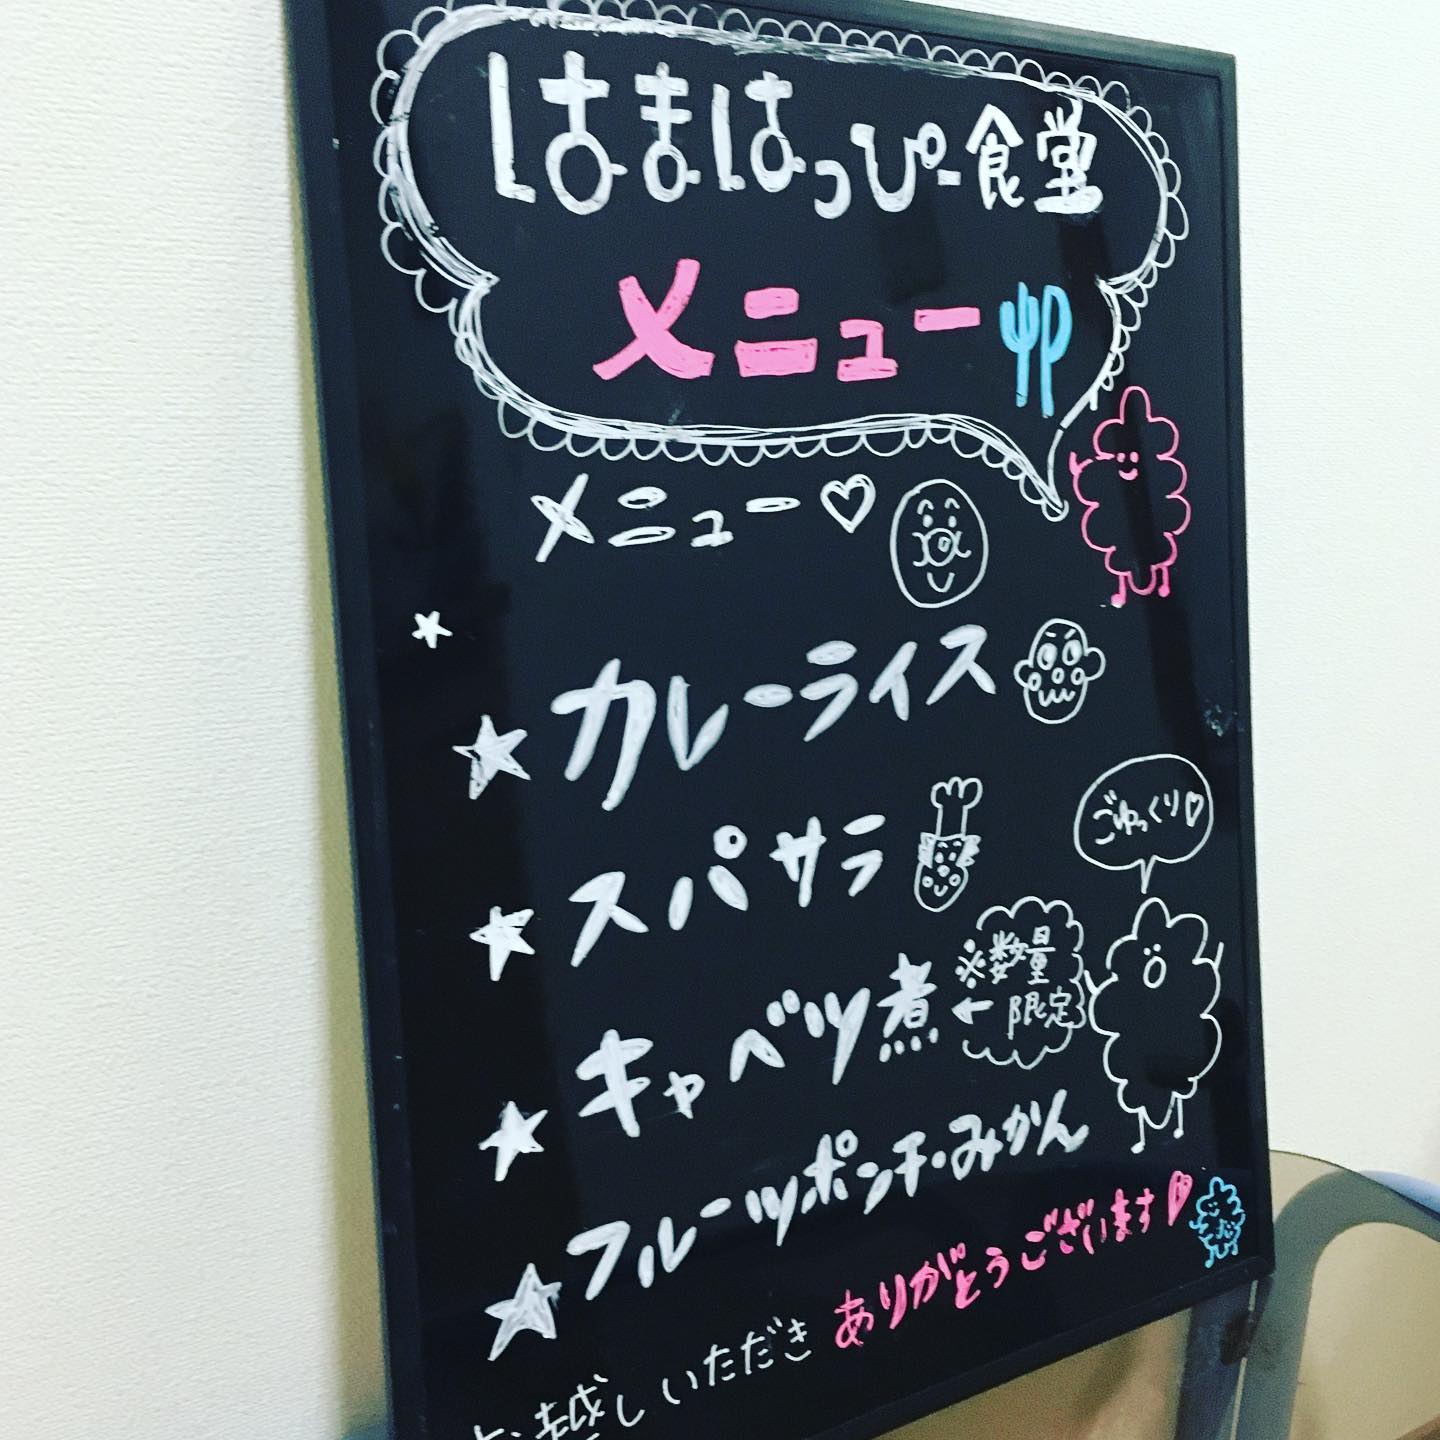 はまはっぴー食堂
メニュー
メニュー♡
★カレーライス
★スパサラ
ごゆっくり♡
★キャベツ煮
※数量
←限定
★フルーツポンチ・みかん
お越しいただき ありがとうございます